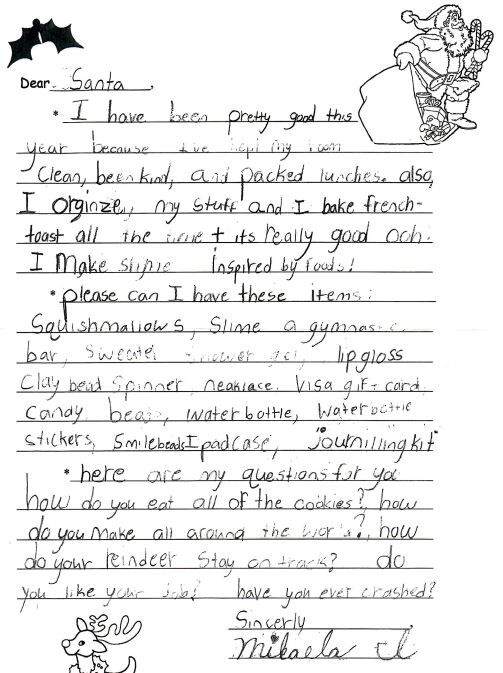 Dear Santa,
* I have been pretty good this
year because I've kept my room
Clean, been kind, and packed lunches. also,
I orginze, my stuff and I bake french-
toast all the time + its really good ooh.
I Make slime inspired by foods!
* please can I have these items:
Squishmallows, Slime a gymnastic
bar, Sweater shower gel, lipgloss
Clay bead Spinner, neaklace, Visa gift card,
Candy beads, waterbottle, waterbottle
stickers, Smilebeads Ipad case, journilling kit
* here are my questions for you
how do you eat all of the cookies?, how
do you make all around the world?, how
do your reindeer Stay on track? do
you like your Job? have you ever crashed?
Sincerly,
Mikaela